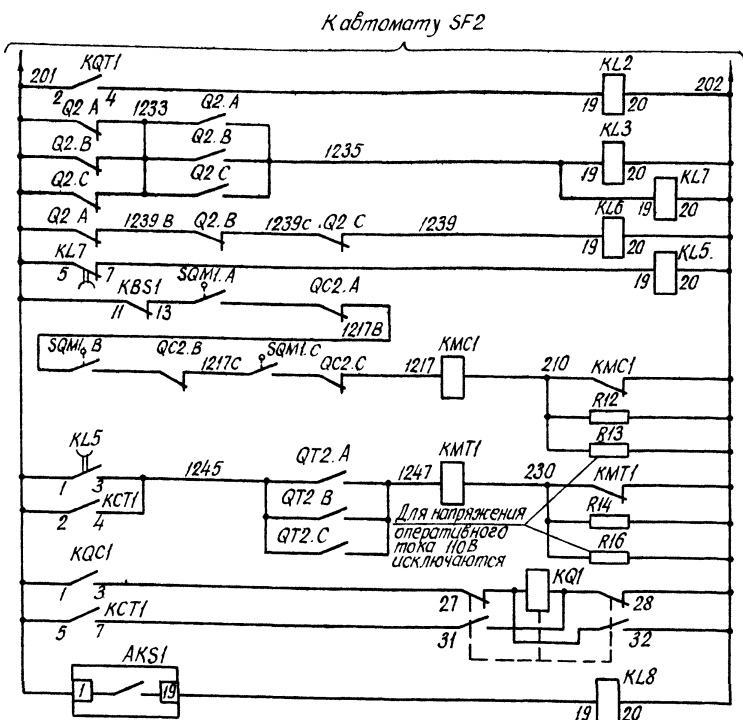 К автомату SF2
201 KQT1 KL2 202
2 4 19 20
Q2.A 1233 Q2.A
Q2.B Q2.B 1235 KL3
Q2.C Q2.C 19 20 KL7
19 20
Q2 A 1239 B Q2.B 1239c Q2 C 1239 KL6
19 20
KL7 KL5.
5 7 19 20
KBS1 SQM1.A QC2.A
11 13
1217B
SQM1.B QC2.B 1217C SQM1.C QC2.C 1217 KMC1 210 KMC1
R12
R13
KL5 1245 QT2.A 1247 KMT1 230 KMT1
1 3
2 4 KCT1 QT2 B R14
QT2.C R16
Для напряжения
оперативного
тока 110В
исключаются
KQC1 KQ1
1 3 27 28
KCT1
5 7 31 32
AKS1
1 19 KL8
19 20